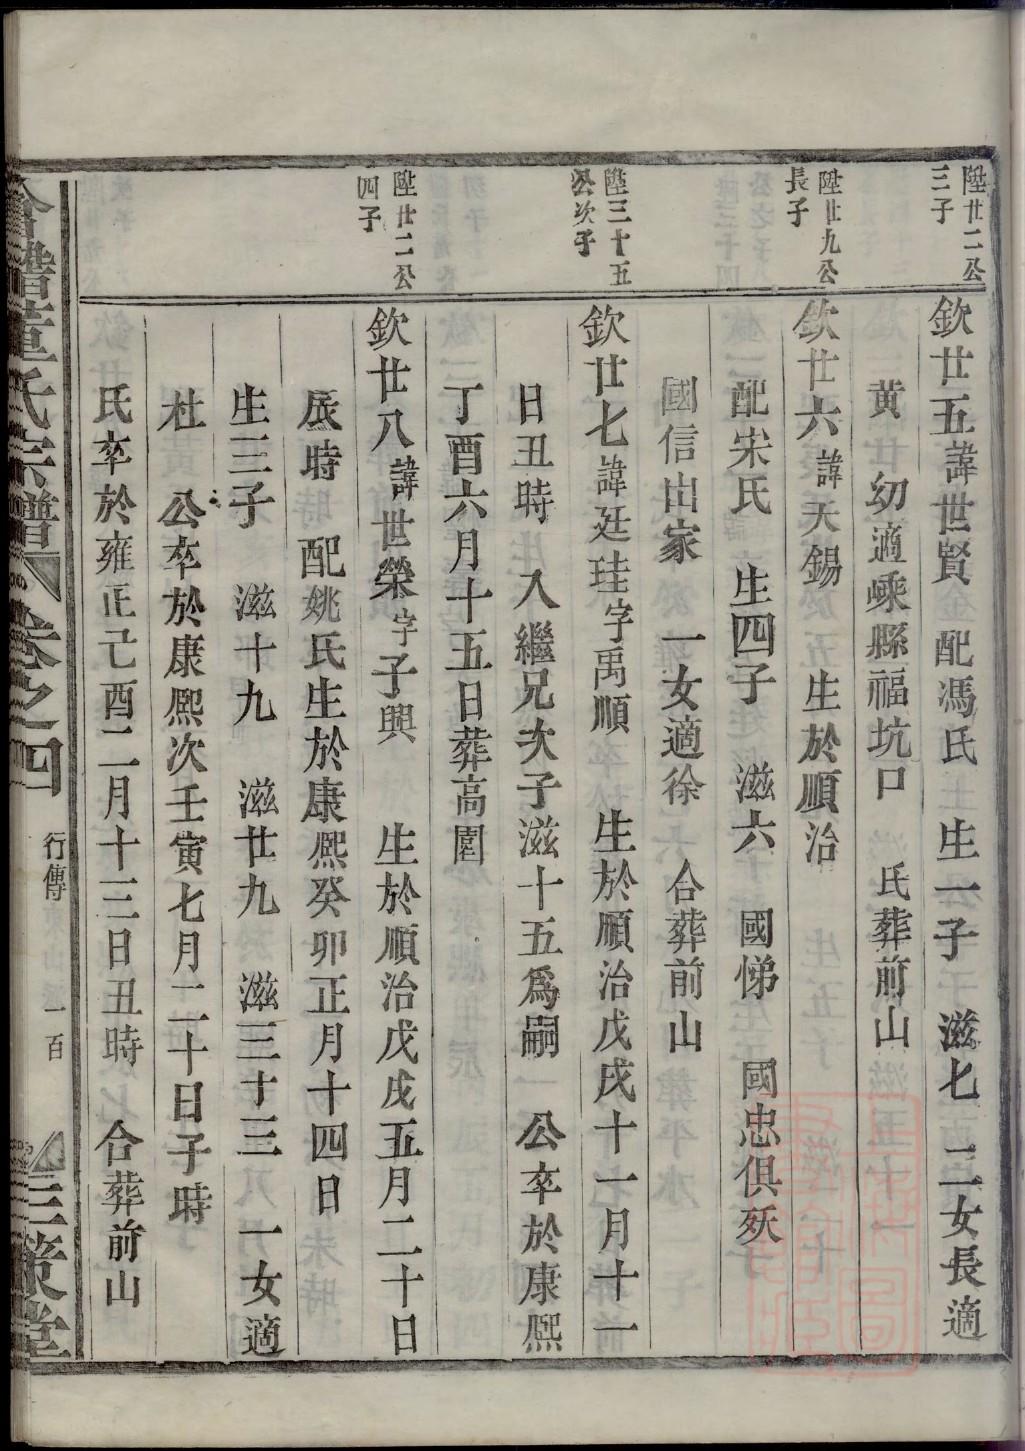 陞廿二公
三子
欽廿五諱世賢 配馮氏 生一子 滋七 二女長適
黄 幼適嵊縣福坑口 氏葬前山
陞廿九公
長子
欽廿六諱天錫 生於順治
配宋氏 生四子 滋六 國悌 國忠俱殀
國信出家 一女適徐 合葬前山
陞三十五
公次子
欽廿七諱廷珪字禹順 生於順治戊戌十一月十一
日丑時 入繼兄次子滋十五爲嗣 公卒於康熙
丁酉六月十五日葬高園
陞廿二公
四子
欽廿八諱世榮字子興 生於順治戊戌五月二十日
辰時 配姚氏生於康熙癸卯正月十四日
生三子 滋十九 滋廿九 滋三十三 一女適
杜 公卒於康熙次壬寅七月二十日子時
氏卒於雍正己酉二月十三日丑時 合葬前山
會譜董氏宗譜 卷之四 行傳 一百 三策堂